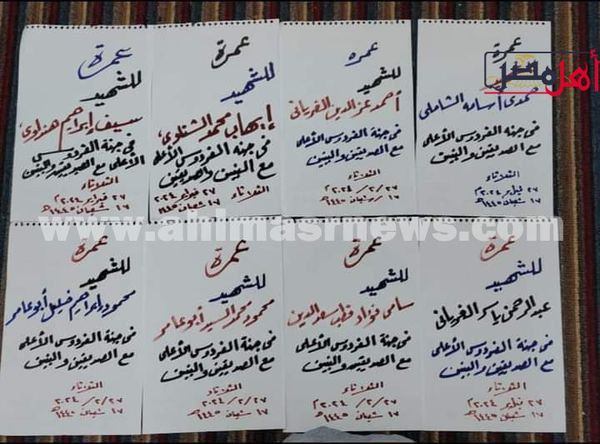 أهل مصر
عمرة
للشهيد
حمدى أسامه الشاملى
فى جنة الفردوس الأعلى
مع الصديقين والنبيين
الثلاثاء
٢٧ فبراير ٢٠٢٤
١٧ شعبان ١٤٤٥هـ
عمره
للشهيد
أحمد عز الدين الغريانى
فى جنة الفردوس الأعلى
مع الصديقين والنبيين
الثلاثاء
٢٠٢٤/٢/٢٧
١٧ شعبان ١٤٤٥
عمرة
للشهيد
إيهاب محمد الشناوى
فى جنة الفردوس الأعلى
مع النبيين والصديقين
الثلاثاء
٢٧ فبراير ٢٠٢٤
١٧ شعبان ١٤٤٥
عمرة
للشهيد
سيف إبراهيم هنداوى
فى جنة الفردوس
الأعلى مع الصديقين والنبيين
الثلاثاء
٢٧ فبراير ٢٠٢٤
١٧ شعبان ١٤٤٥هـ
www.ahlmasrnews.com
عمرة
للشهيد
عبدالرحمن ياسر الغريانى
فى جنة الفردوس الأعلى
مع الصديقين والنبيين
الثلاثاء
٢٧ فبراير ٢٠٢٤
١٧ شعبان ١٤٤٥هـ
عمرة
للشهيد
سامى فؤاد قطب سعد الدين
فى جنة الفردوس الأعلى
مع الصديقين والنبيين
الثلاثاء
٢٠٢٤/٢/٢٧
١٧ شعبان ١٤٤٥هـ
عمرة
للشهيد
محمود محمد السيد أبو عامر
فى جنة الفردوس الأعلى
مع الصديقين والنبيين
الثلاثاء
٢٠٢٤/٢/٢٧
١٧ شعبان ١٤٤٥هـ
عمرة
للشهيد
محمود إبراهيم خليل أبو عامر
فى جنة الفردوس الأعلى
مع الصديقين والنبيين
الثلاثاء
٢٠٢٤/٢/٢٧
١٧ شعبان ١٤٤٥هـ